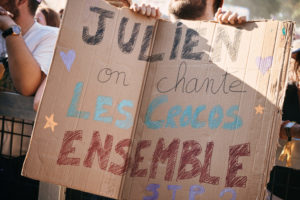 JULIEN
on chante
LES CROCOS
ENSEMBLE
STP